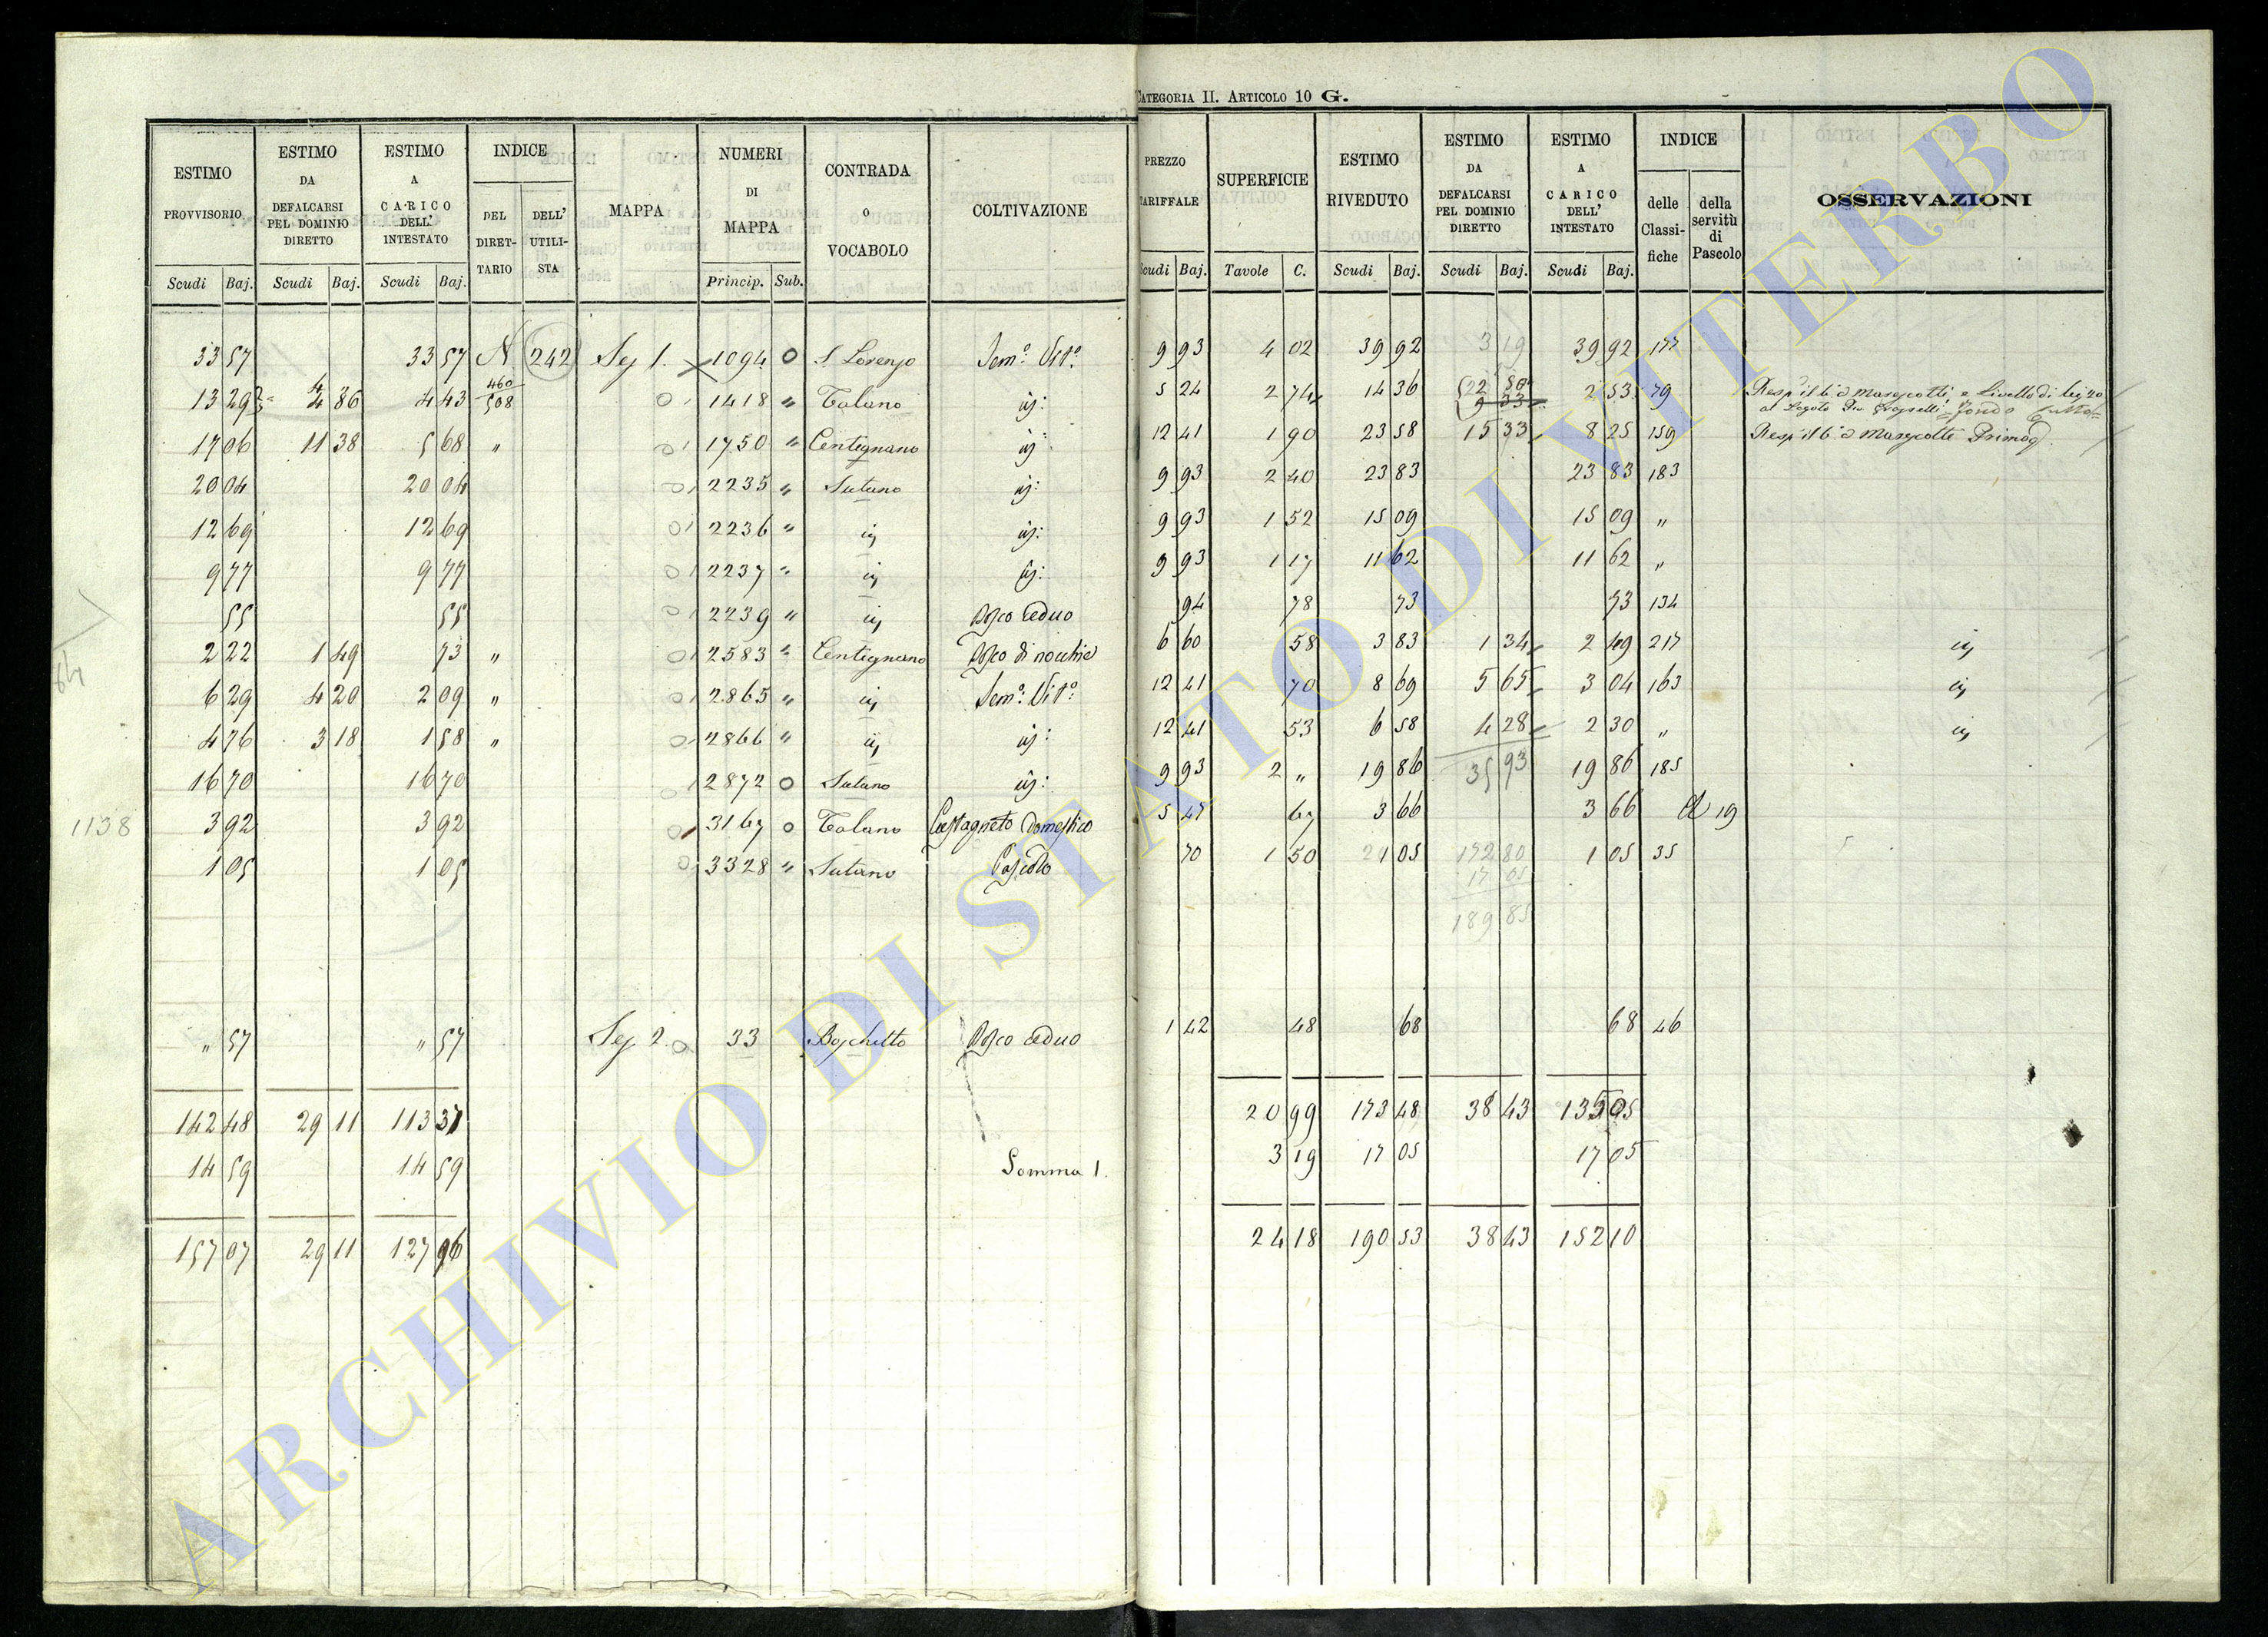 CATEGORIA II. ARTICOLO 10 G.
ESTIMO PROVVISORIO | ESTIMO DA DEFALCARSI PEL DOMINIO DIRETTO | ESTIMO A CARICO DELL' INTESTATO | INDICE DEL DIRET-TARIO | DELL' UTILI-STA | MAPPA | NUMERI DI MAPPA | CONTRADA O VOCABOLO | COLTIVAZIONE | PREZZO TARIFFALE | SUPERFICIE | ESTIMO RIVEDUTO | ESTIMO DA DEFALCARSI PEL DOMINIO DIRETTO | ESTIMO A CARICO DELL' INTESTATO | INDICE delle Classi-fiche | della servitù di Pascolo | OSSERVAZIONI
Scudi | Baj. | Scudi | Baj. | Scudi | Baj. | Princip. | Sub. | Scudi | Baj. | Tavole | C. | Scudi | Baj. | Scudi | Baj. | Scudi | Baj.
33 57 | 33 57 | N. | 242 | Sez 1. | 1094 | 0 | S. Lorenzo | Sem.o Vit.o | 9 93 | 4 02 | 39 92 | 3 19 | 39 92 | 177
13 29 | 4 86 | 4 43 | 460 508 | 1418 | " | Talano | id: | 5 24 | 2 74 | 14 36 | 2 53 | 79
17 06 | 11 38 | 5 68 | " | 1750 | " | Centignano | id: | 12 41 | 1 90 | 23 58 | 15 33 | 8 25 | 159
20 04 | 20 04 | 2235 | " | Sutano | id: | 9 93 | 2 40 | 23 83 | 23 83 | 183
12 69 | 12 69 | 2236 | " | id | id: | 9 93 | 1 52 | 15 09 | 15 09 | "
9 77 | 9 77 | 2237 | " | id | id: | 9 93 | 1 17 | 11 62 | 11 62 | "
55 | 55 | 2239 | " | id | Bosco ceduo | 94 | 78 | 73 | 73 | 134
2 22 | 1 49 | 73 | " | 2583 | " | Centignano | Bosco di nocchie | 6 60 | 58 | 3 83 | 1 34 | 2 49 | 217 | id
6 29 | 4 20 | 2 09 | " | 2865 | " | id | Sem.o Vit.o | 12 41 | 70 | 8 69 | 5 65 | 3 04 | 163 | id
4 76 | 3 18 | 1 58 | " | 2866 | " | id | id: | 12 41 | 53 | 6 58 | 4 28 | 2 30 | " | id
16 70 | 16 70 | 2872 | 0 | Sutano | id: | 9 93 | 2 " | 19 86 | 35 93 | 19 86 | 185
1138 | 3 92 | 3 92 | 3167 | 0 | Talano | Castagneto Domestico | 5 47 | 67 | 3 66 | 3 66 | 19
1 05 | 1 05 | 3328 | " | Sutano | Pascolo | 70 | 1 50 | 1 05 | 172 80 | 1 05 | 35
17 05
189 85
" 57 | " 57 | Sez 2. | 33 | Boschetto | Bosco ceduo | 1 42 | 48 | 68 | 68 | 46
142 48 | 29 11 | 113 37 | 20 99 | 173 48 | 38 43 | 135 05
14 59 | 14 59 | Somma 1. | 3 19 | 17 05 | 17 05
157 07 | 29 11 | 127 96 | 24 18 | 190 53 | 38 43 | 152 10
ARCHIVIO DI STATO DI VITERBO